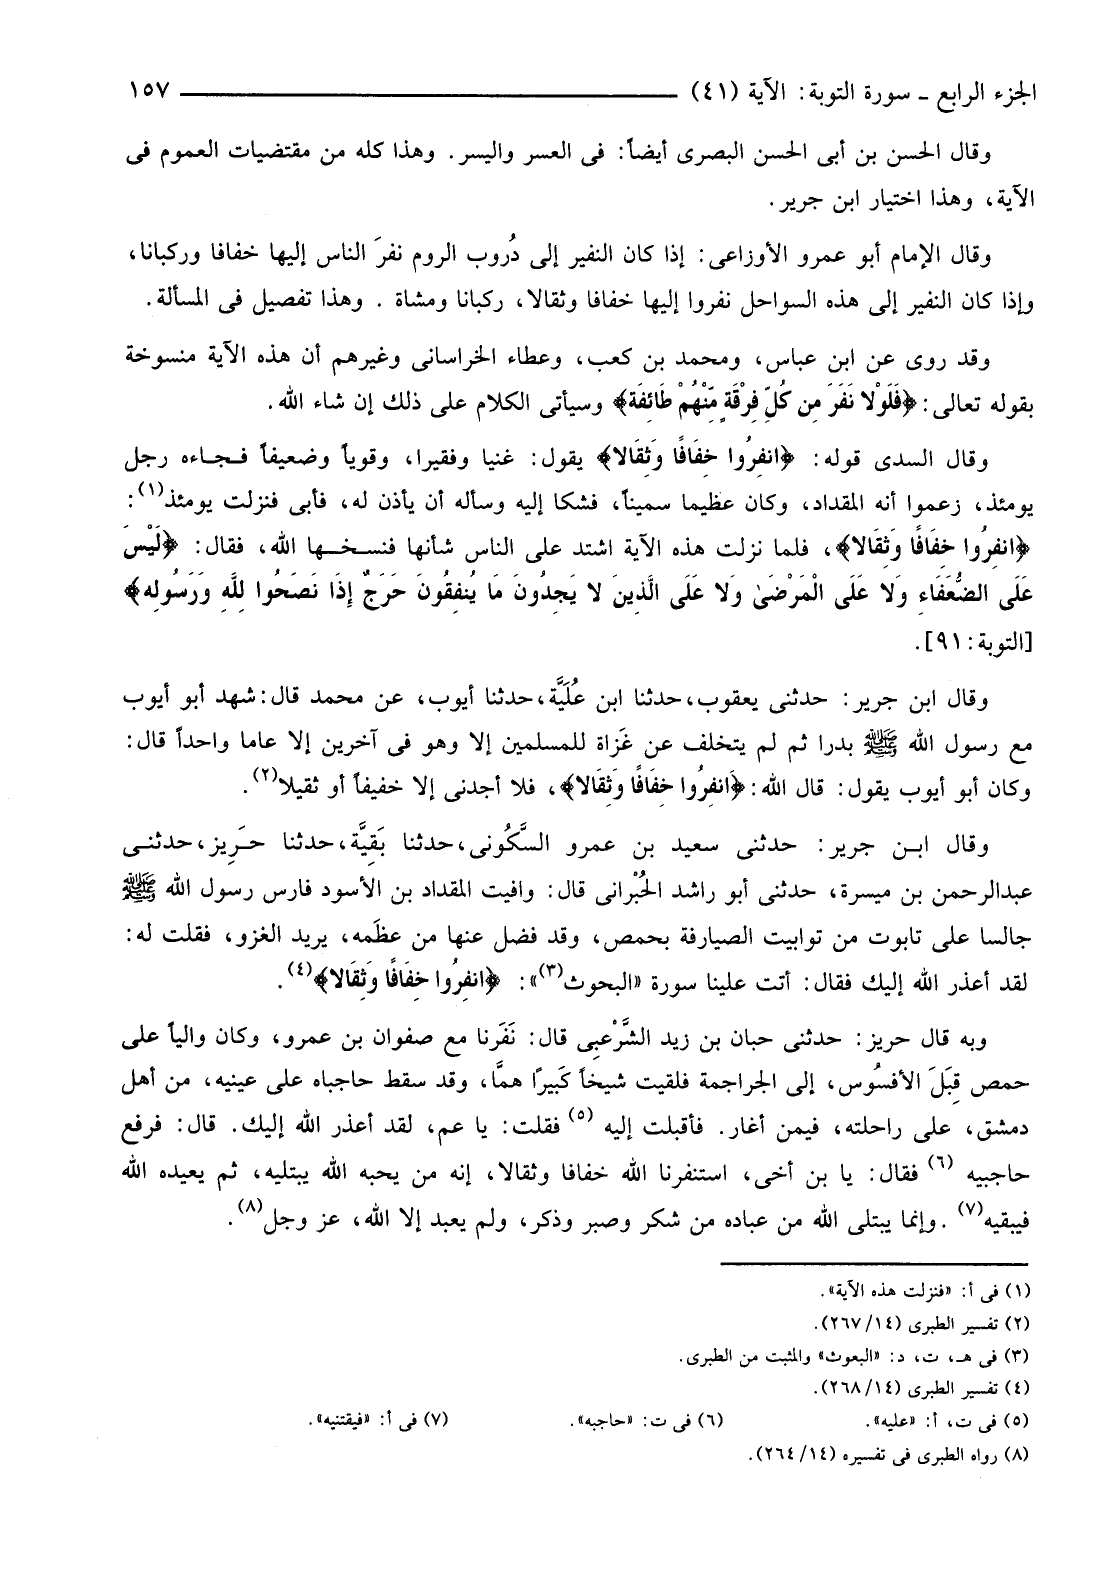 الجزء الرابع - سورة التوبة: الآية (٤١) ١٥٧
وقال الحسن بن أبى الحسن البصرى أيضاً: فى العسر واليسر. وهذا كله من مقتضيات العموم فى
الآية، وهذا اختيار ابن جرير.
وقال الإمام أبو عمرو الأوزاعى: إذا كان النفير إلى دُروب الروم نفرَ الناس إليها خفافا وركبانا،
وإذا كان النفير إلى هذه السواحل نفروا إليها خفافا وثقالا، ركبانا ومشاة . وهذا تفصيل فى المسألة.
وقد روى عن ابن عباس، ومحمد بن كعب، وعطاء الخراسانى وغيرهم أن هذه الآية منسوخة
بقوله تعالى: ﴿فَلَوْلا نَفَرَ مِن كُلِّ فِرْقَةٍ مِّنْهُمْ طَائِفَة﴾ وسيأتى الكلام على ذلك إن شاء الله.
وقال السدى قوله: ﴿انفِرُوا خِفَافًا وَثِقَالا﴾ يقول: غنيا وفقيرا، وقوياً وضعيفاً فجاءه رجل
يومئذ، زعموا أنه المقداد، وكان عظيما سميناً، فشكا إليه وسأله أن يأذن له، فأبى فنزلت يومئذ(١):
﴿انفِرُوا خِفَافًا وَثِقَالا﴾، فلما نزلت هذه الآية اشتد على الناس شأنها فنسخها الله، فقال: ﴿لَيْسَ
عَلَى الضُّعَفَاءِ وَلا عَلَى الْمَرْضَىٰ وَلا عَلَى الَّذِينَ لا يَجِدُونَ مَا يُنفِقُونَ حَرَجٌ إِذَا نَصَحُوا لِلَّهِ وَرَسُولِه﴾
[التوبة: ٩١].
وقال ابن جرير: حدثنى يعقوب،حدثنا ابن عُلَيَّة،حدثنا أيوب، عن محمد قال:شهد أبو أيوب
مع رسول الله ﷺ بدرا ثم لم يتخلف عن غَزاة للمسلمين إلا وهو فى آخرين إلا عاما واحداً قال:
وكان أبو أيوب يقول: قال الله: ﴿انفِرُوا خِفَافًا وَثِقَالا﴾، فلا أجدنى إلا خفيفاً أو ثقيلا(٢).
وقال ابن جرير: حدثنى سعيد بن عمرو السَّكُونى،حدثنا بَقِيَّة،حدثنا حَرِيز،حدثنى
عبدالرحمن بن ميسرة، حدثنى أبو راشد الحُبْرانى قال: وافيت المقداد بن الأسود فارس رسول الله ﷺ
جالسا على تابوت من توابيت الصيارفة بحمص، وقد فضل عنها من عظَمه، يريد الغزو، فقلت له:
لقد أعذر الله إليك فقال: أتت علينا سورة «البحوث(٣)»: ﴿انفِرُوا خِفَافًا وَثِقَالا﴾(٤).
وبه قال حريز: حدثنى حبان بن زيد الشَّرْعبى قال: نَفَرنا مع صفوان بن عمرو، وكان والياً على
حمص قِبَلَ الأفسُوس، إلى الجراجمة فلقيت شيخاً كَبيرًا همًّا، وقد سقط حاجباه على عينيه، من أهل
دمشق، على راحلته، فيمن أغار. فأقبلت إليه (٥) فقلت: يا عم، لقد أعذر الله إليك. قال: فرفع
حاجبيه (٦) فقال: يا بن أخى، استنفرنا الله خفافا وثقالا، إنه من يحبه الله يبتليه، ثم يعيده الله
فيبقيه(٧) .وإنما يبتلى الله من عباده من شكر وصبر وذكر، ولم يعبد إلا الله، عز وجل(٨).
(١) فى أ: «فنزلت هذه الآية».
(٢) تفسير الطبرى (٢٦٧/١٤).
(٣) فى هـ، ت، د: «البعوث» والمثبت من الطبرى.
(٤) تفسير الطبرى (٢٦٨/١٤).
(٥) فى ت، أ: «عليه». (٦) فى ت: «حاجبه». (٧) فى أ: «فيقتنيه».
(٨) رواه الطبرى فى تفسيره (٢٦٤/١٤).